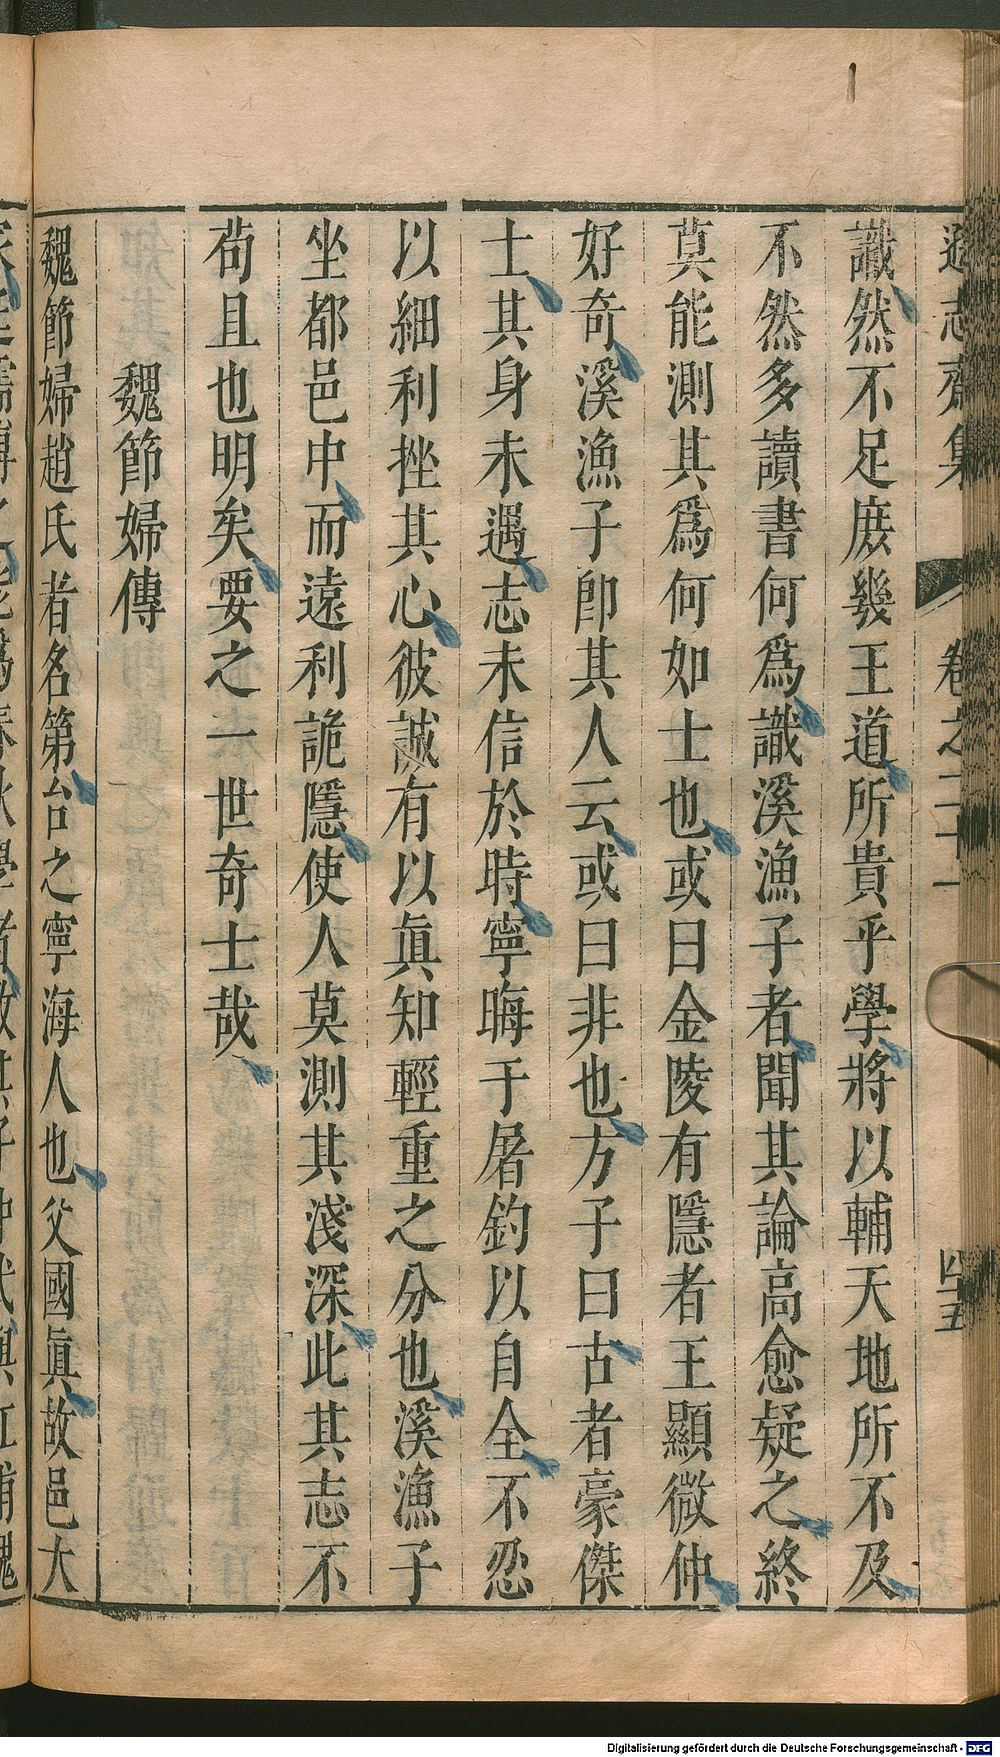 遜志齋集　卷之二十一　四五
識然不足庶幾王道所貴乎學將以輔天地所不及
不然多讀書何爲識溪漁子者聞其論高愈疑之終
莫能測其爲何如士也或曰金陵有隱者王顯微仲
好奇溪漁子卽其人云或曰非也方子曰古者豪傑
士其身未遇志未信於時寧晦于屠釣以自全不忍
以細利挫其心彼誠有以眞知輕重之分也溪漁子
坐都邑中而遠利詭隱使人莫測其淺深此其志不
苟且也明矣要之一世奇士哉
魏節婦傳
魏節婦趙氏者名第台之寧海人也父國眞故邑大
Digitalisierung gefördert durch die Deutsche Forschungsgemeinschaft - DFG